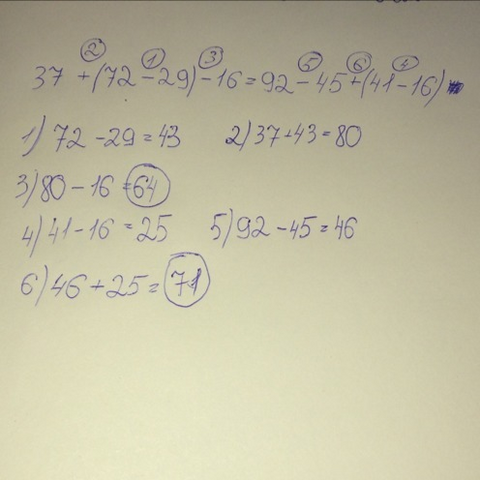 ② ① ③ ⑤ ⑥ ④
37 + (72 - 29) - 16 = 92 - 45 + (41 - 16)
1) 72 - 29 = 43 2) 37 + 43 = 80
3) 80 - 16 = 64
4) 41 - 16 = 25 5) 92 - 45 = 46
6) 46 + 25 = 71